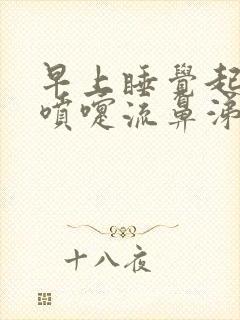 早上睡覺起
噴嚏流鼻涕
十八夜